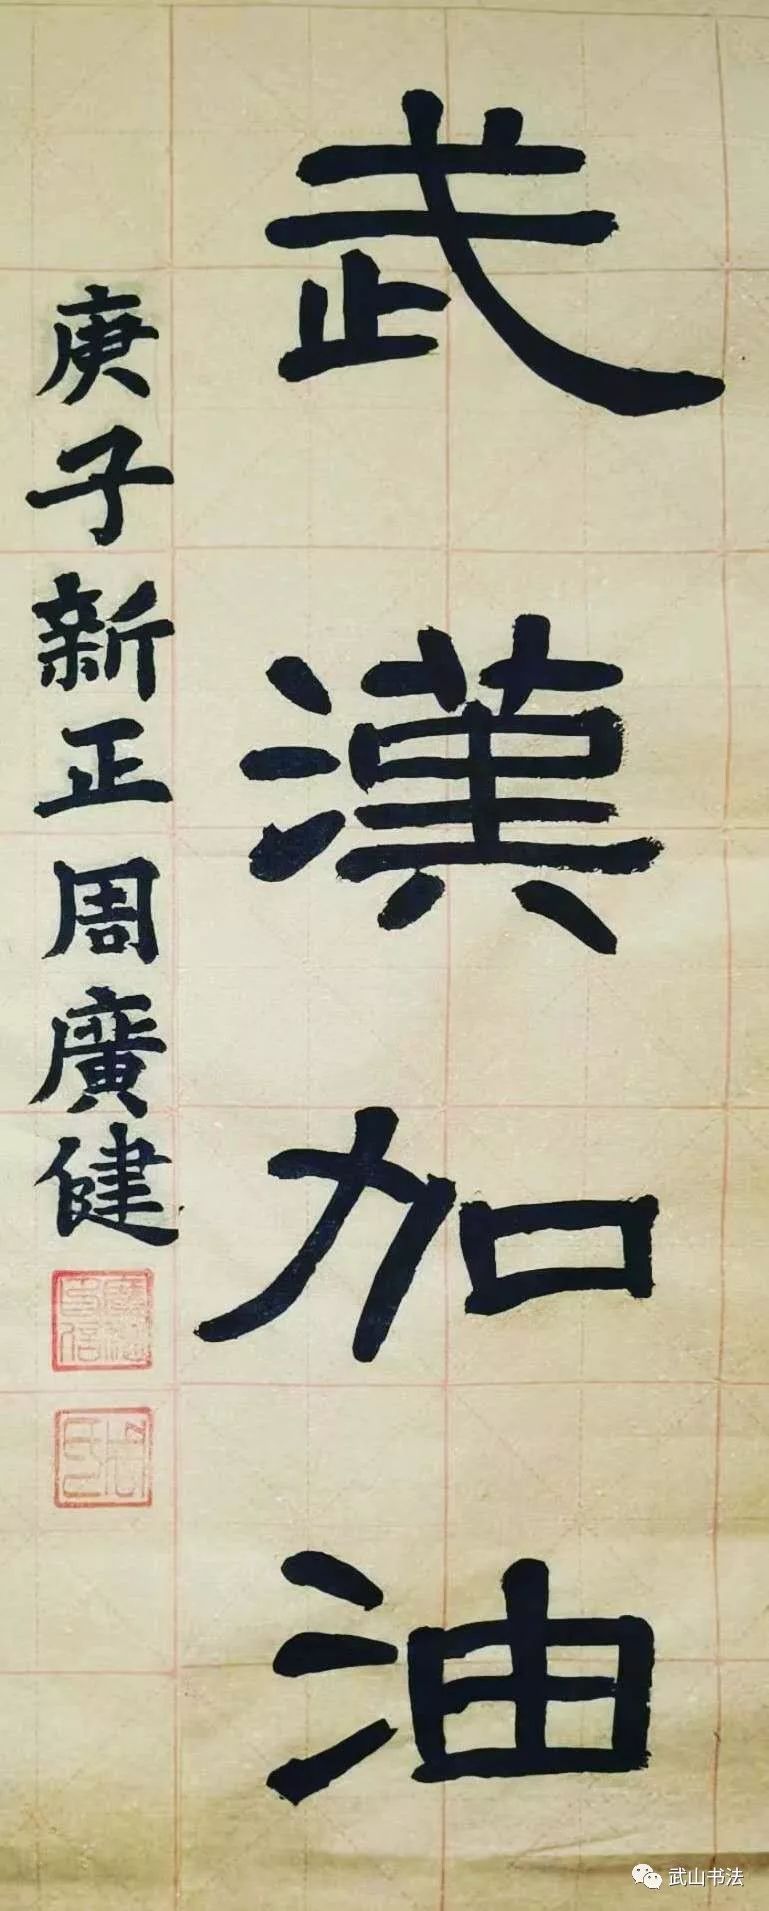 武漢加油
庚子新正周廣健
武山书法